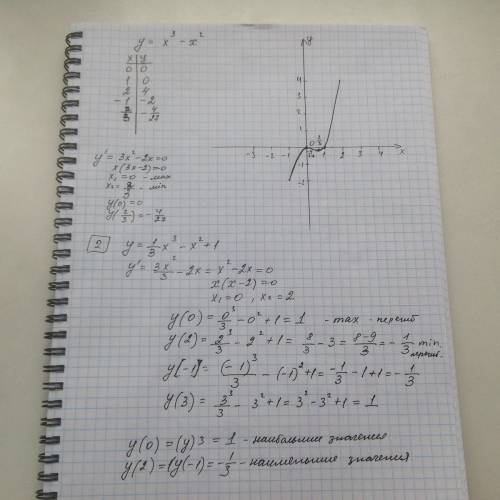 y = x³ - x²
x | y
0 | 0
1 | 0
2 | 4
-1 | -2
2/3 | -4/27
y' = 3x² - 2x = 0
x(3x-2) = 0
x₁ = 0 - max
x₂ = 2/3 - min
y(0) = 0
y(2/3) = -4/27
y
4
3
2
1
0
-3 -2 -1 1 2 3 4 x
-1
-2
2 y = 1/3 x³ - x² + 1
y' = 3x²/3 - 2x = x² - 2x = 0
x(x-2) = 0
x₁ = 0, x₂ = 2
y(0) = 0³/3 - 0² + 1 = 1 - max - перегиб
y(2) = 2³/3 - 2² + 1 = 8/3 - 3 = 8-9/3 = -1/3 min, перегиб.
y[-1] = (-1)³/3 - (-1)² + 1 = -1/3 - 1 + 1 = -1/3
y(3) = 3³/3 - 3² + 1 = 3² - 3² + 1 = 1
y(0) = (y)3 = 1 - наибольшие значения
y(2) = (y(-1) = -1/3 - наименьшие значения